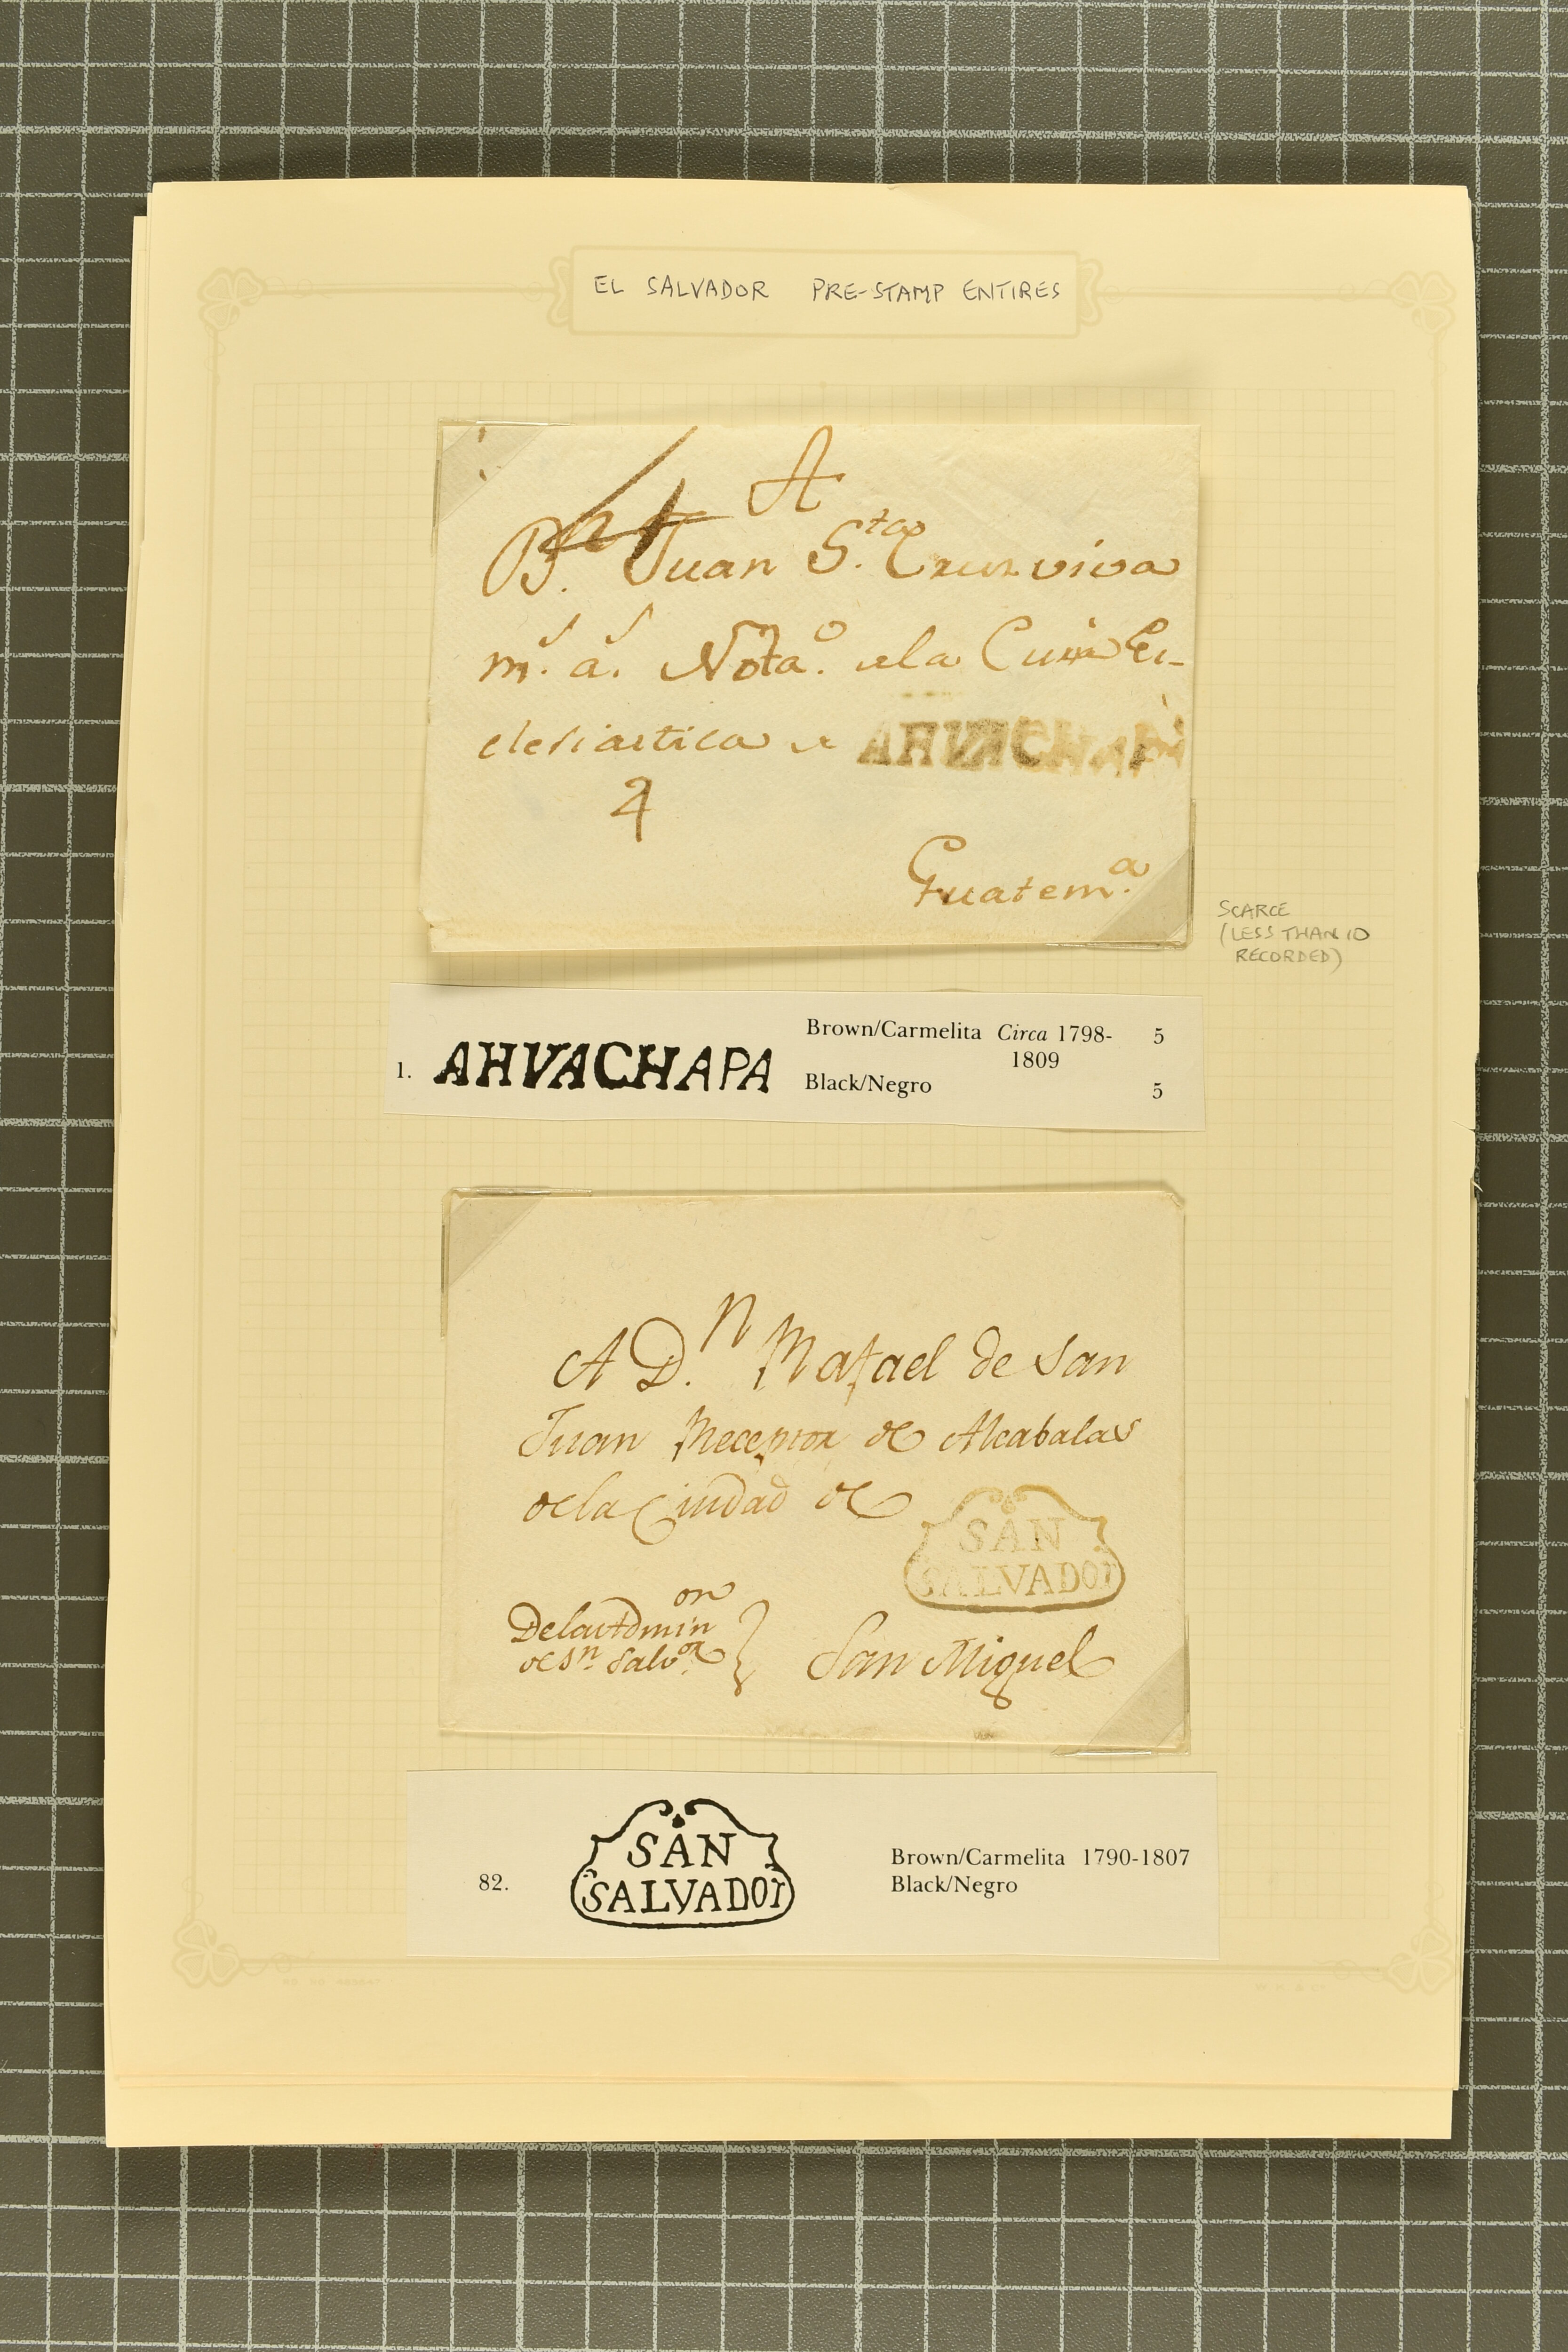 EL SALVADOR PRE-STAMP ENTIRES
A
B.r Juan S.ta Cruz viva
m.s a.s Nota.o de la Curia Ec-
clesiastica de AHVACHAPA
4
Guatem.a
SCARCE
(LESS THAN 10
RECORDED)
1. AHVACHAPA Brown/Carmelita Circa 1798- 5
1809
Black/Negro 5
A D.n Rafael de San
Juan Receptor de Alcabalas
de la Ciudad de
SAN
SALVADOr
De la Admin on
de Sn. Salv.or San Miguel
SAN
SALVADOr
82.
Brown/Carmelita 1790-1807
Black/Negro